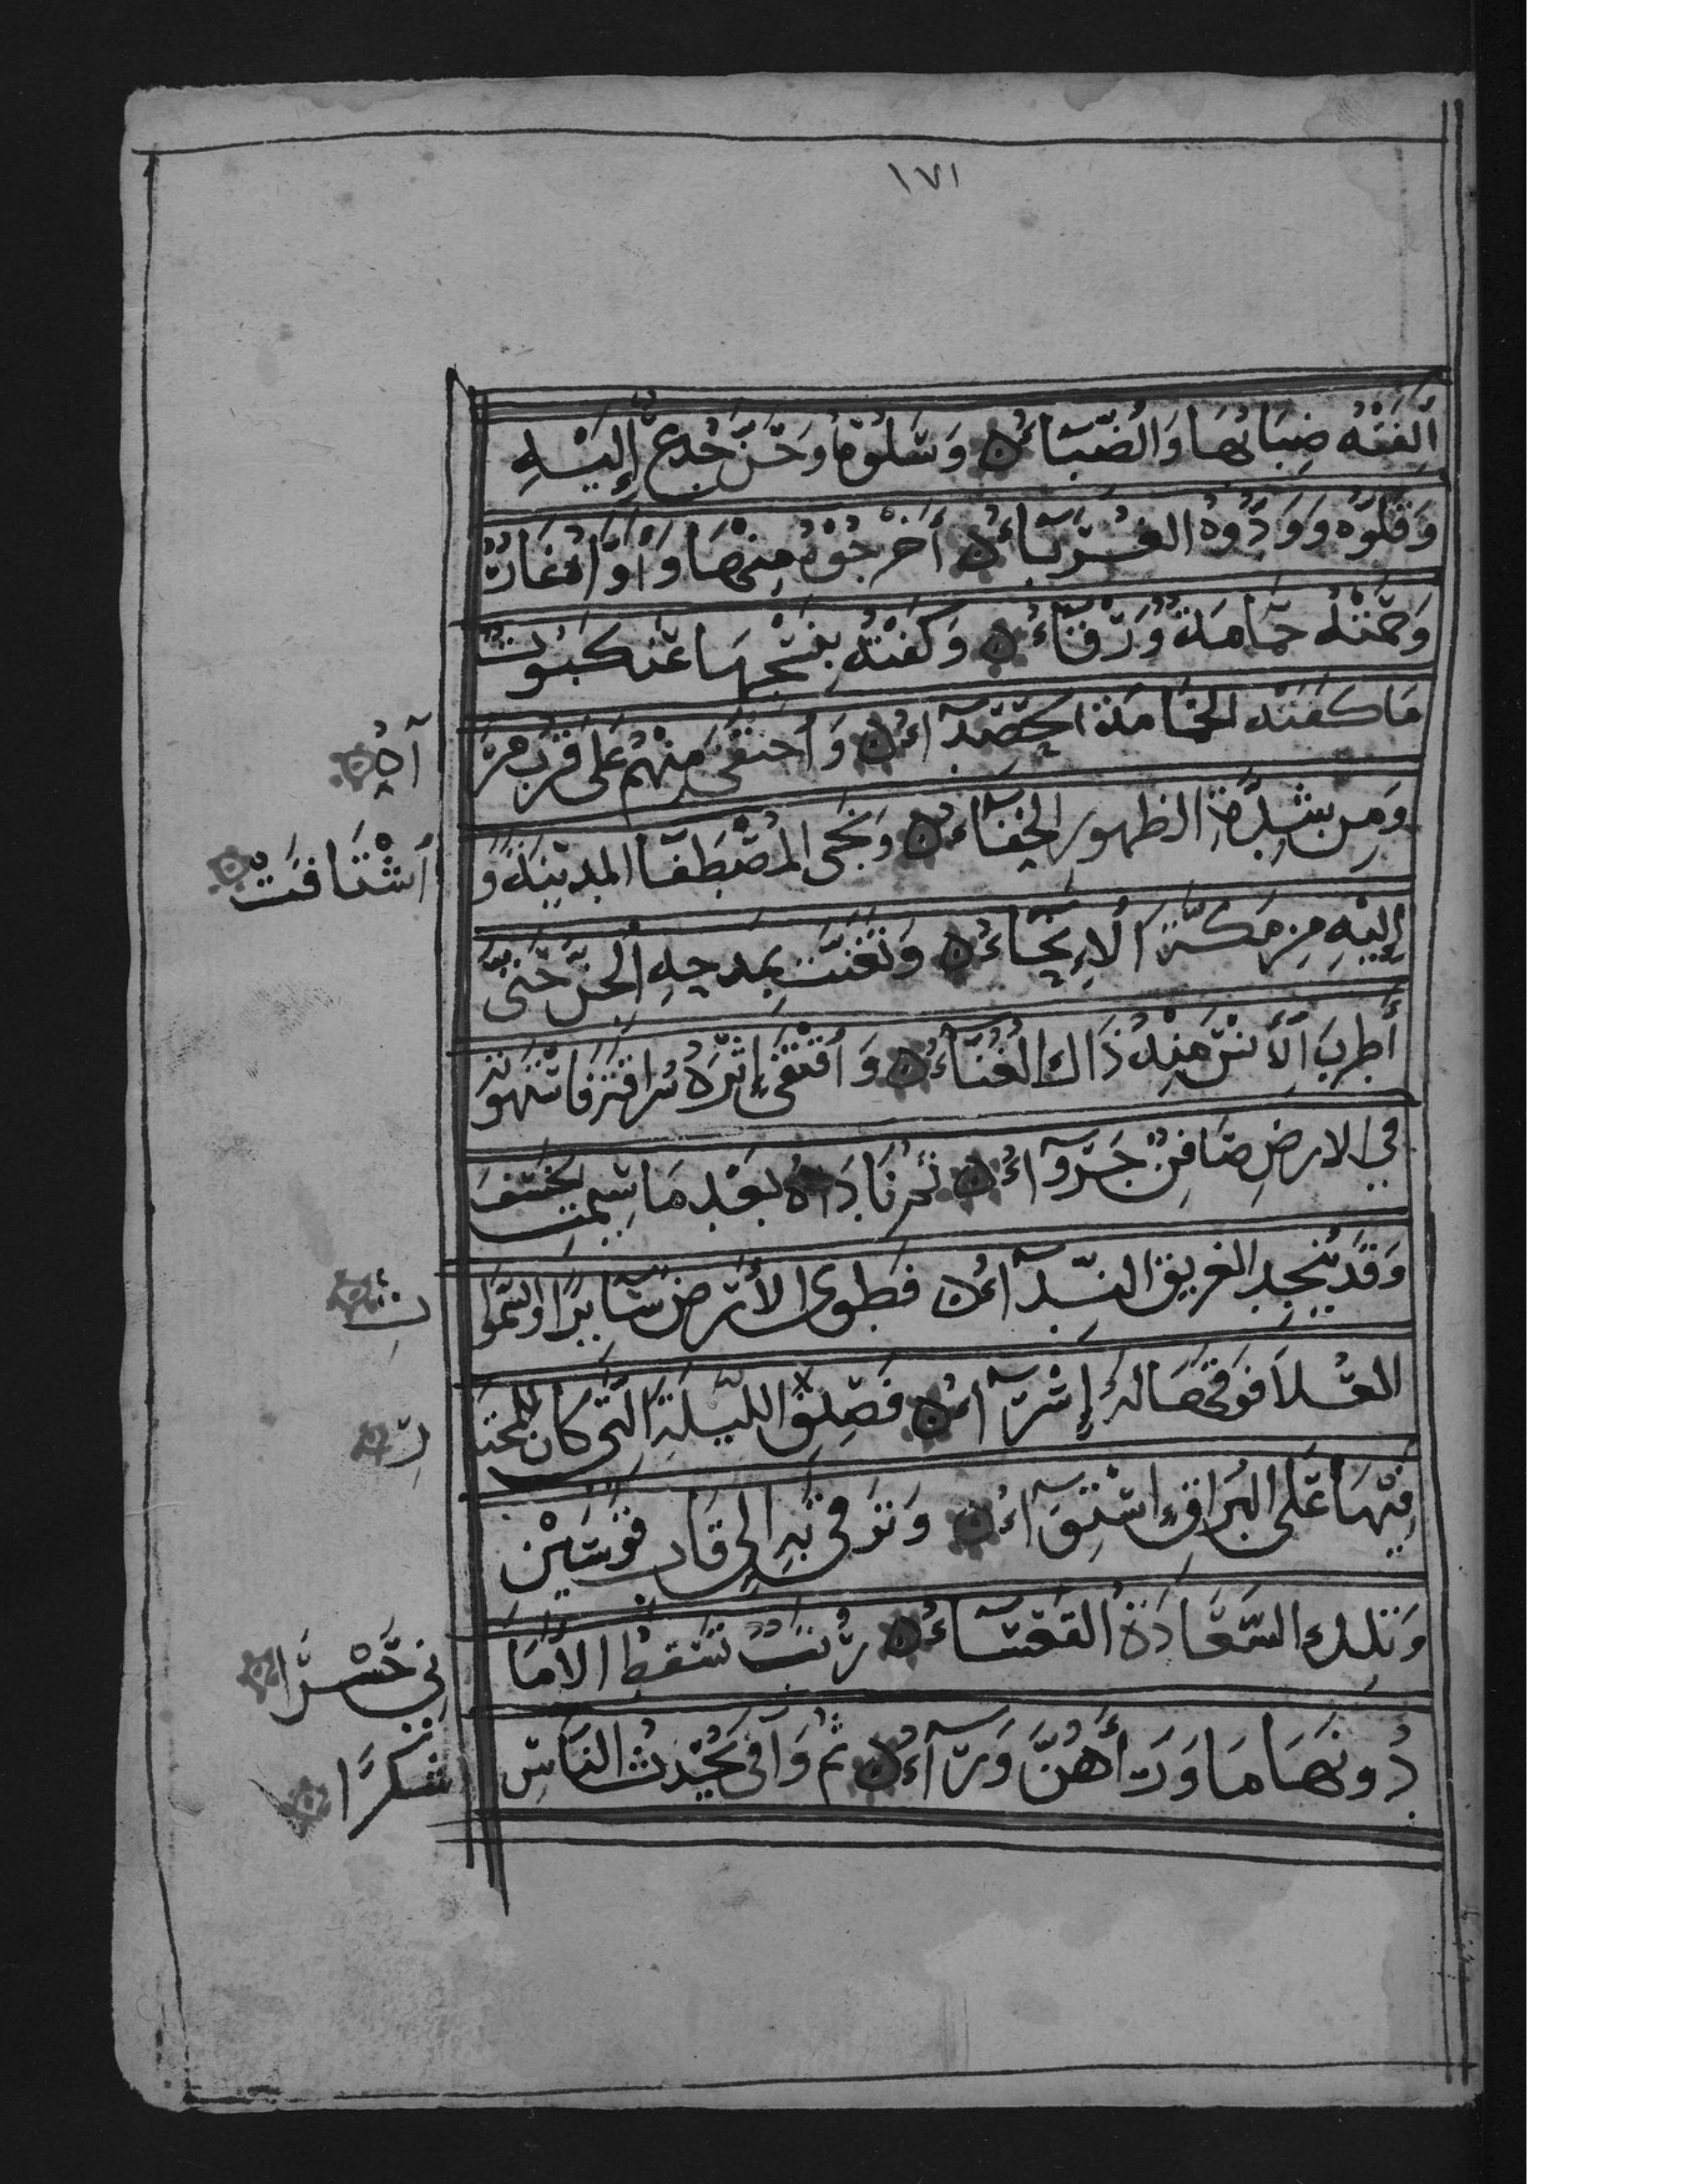 ١٧١
اَلِفَتْهُ ضِبَابُهَا وَالضِّبَاءُ وَسَلُوْهُ وَحَنَّ جِذْعٌ إِلَيْهِ
وَقَلَوْهُ وَوَدَّوْهُ الغُرَبَاءُ أَخْرَجُوْهُ مِنْهَا وَاٰوَاهُ غَارٌ
وَحَمَتْهُ حَمَامَةٌ وَرْقَاءُ وَكَفَتْهُ بِنَسْجِهَا عَنْكَبُوْتٌ
مَا كَفَتْهُ الحَمَامَةُ الحَصْدَآءُ وَاَختفى مِنْهُمُ عَلَى قُرْبِ مَرْ
آهُ
وَمِنْ شِدَّةِ الظهورِ الخِفَاءُ وَنَحَى المُصْطَفَا المَدِيْنَةَ وَ
اَشْتَاقَتْ
إِلَيْهِ مِنْ مَكَّةَ الْأَنْحَاءُ وَتَغَنَّتْ بِمَدحِهِ الْجِنُّ حَتَّى
أَطْرَبَ الْأُنْسَ مِنْهُ ذَاكَ الغِنَاءُ وَاقْتَفَى إِثْرَهُ سُرَاقَةُ فَاسْتَهْوَتْهُ
في الارضِ صَافِنٌ جَرْدَآءُ ثُمَّ نَادَاهُ بَعْدَ مَا سِيْمَتِ الخَسْفَ
وَقَدْ يُنْجِدُ الغَرِيقَ النِّدَآءُ فَطَوى الْأَرْضَ سَائِرًا وَالسَّموَا
تُ
العُلَا فَوقَهَا لَهُ إِسْرَآءُ فَصِفِ اللَّيْلَةَ الَّتِي كَانَ لِلْمُخْتَا
رِ
فِيْهَا عَلَى البُرَاقِ اسْتِوَآءُ وَتَرَقَّى بِهِ إلى قَابِ قَوْسَيْنِ
وَتِلْكَ السَّعَادَةُ القَعْسَاءُ رُتَبٌ تَسْقُطُ الْأَمَا
نِي حَسْرَا
دُونَهَا مَا وَرَاءَهُنَّ وَرَآءُ ثُمَّ وَافَى يُحَدِّثُ النَّاسَ
شُكْرًا